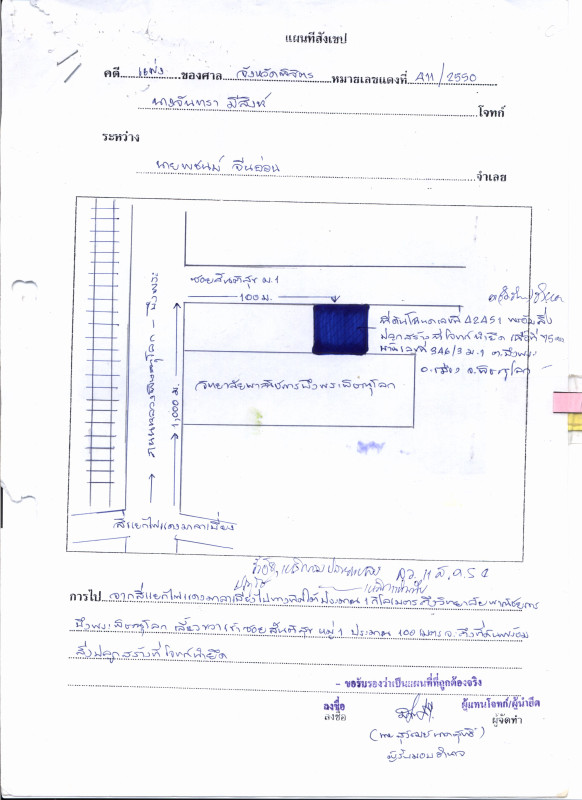 แผนที่สังเขป
คดี แพ่ง ของศาล จังหวัดพิจิตร หมายเลขแดงที่ A11/2550
นางจันทรา มีสิงห์ โจทก์
ระหว่าง
นายพชนม์ จีนอ่อน จำเลย
ซอยสันติสุข ม.1
100 ม.
ที่ดินโฉนดเลขที่ 42451 พร้อมสิ่ง
ปลูกสร้างที่โจทก์นำยึด เนื้อที่
เลขที่ 346/3 ม.1 ต.บึงพระ
อ.เมือง จ.พิษณุโลก
วิทยาลัยพาณิชยการบึงพระพิษณุโลก
ถนนทางหลวงพิษณุโลก – บึงพระ
1,000 ม.
สี่แยกไฟแดงมาลาเบี่ยง
การไป จากสี่แยกไฟแดงมาลาเบี่ยงไปทางทิศใต้ประมาณ 1 กิโลเมตร ถึงวิทยาลัยพาณิชยการ
บึงพระพิษณุโลก เลี้ยวขวาเข้าซอยสันติสุข หมู่ 1 ประมาณ 100 เมตร จะถึงที่ดินพร้อม
สิ่งปลูกสร้างที่โจทก์นำยึด
- ขอรับรองว่าเป็นแผนที่ที่ถูกต้องจริง
ลงชื่อ ผู้แทนโจทก์/ผู้นำยึด
ลงชื่อ ผู้จัดทำ
ผู้รับมอบอำนาจ